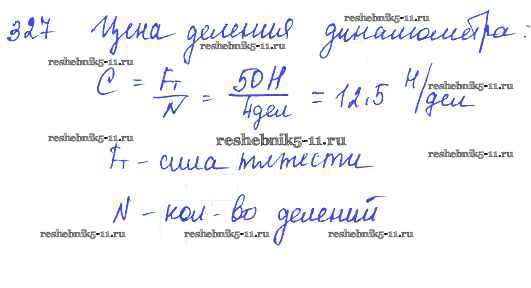 327 Цена деления динамометра:
C = Fт/N = 50Н/4дел = 12,5 Н/дел
Fт - сила тяжести
N - кол-во делений
reshebnik5-11.ru
reshebnik5-11.ru
reshebnik5-11.ru
reshebnik5-11.ru
reshebnik5-11.ru
reshebnik5-11.ru
reshebnik5-11.ru
reshebnik5-11.ru
reshebnik5-11.ru
reshebnik5-11.ru
reshebnik5-11.ru reshebnik5-11.ru reshebnik5-11.ru